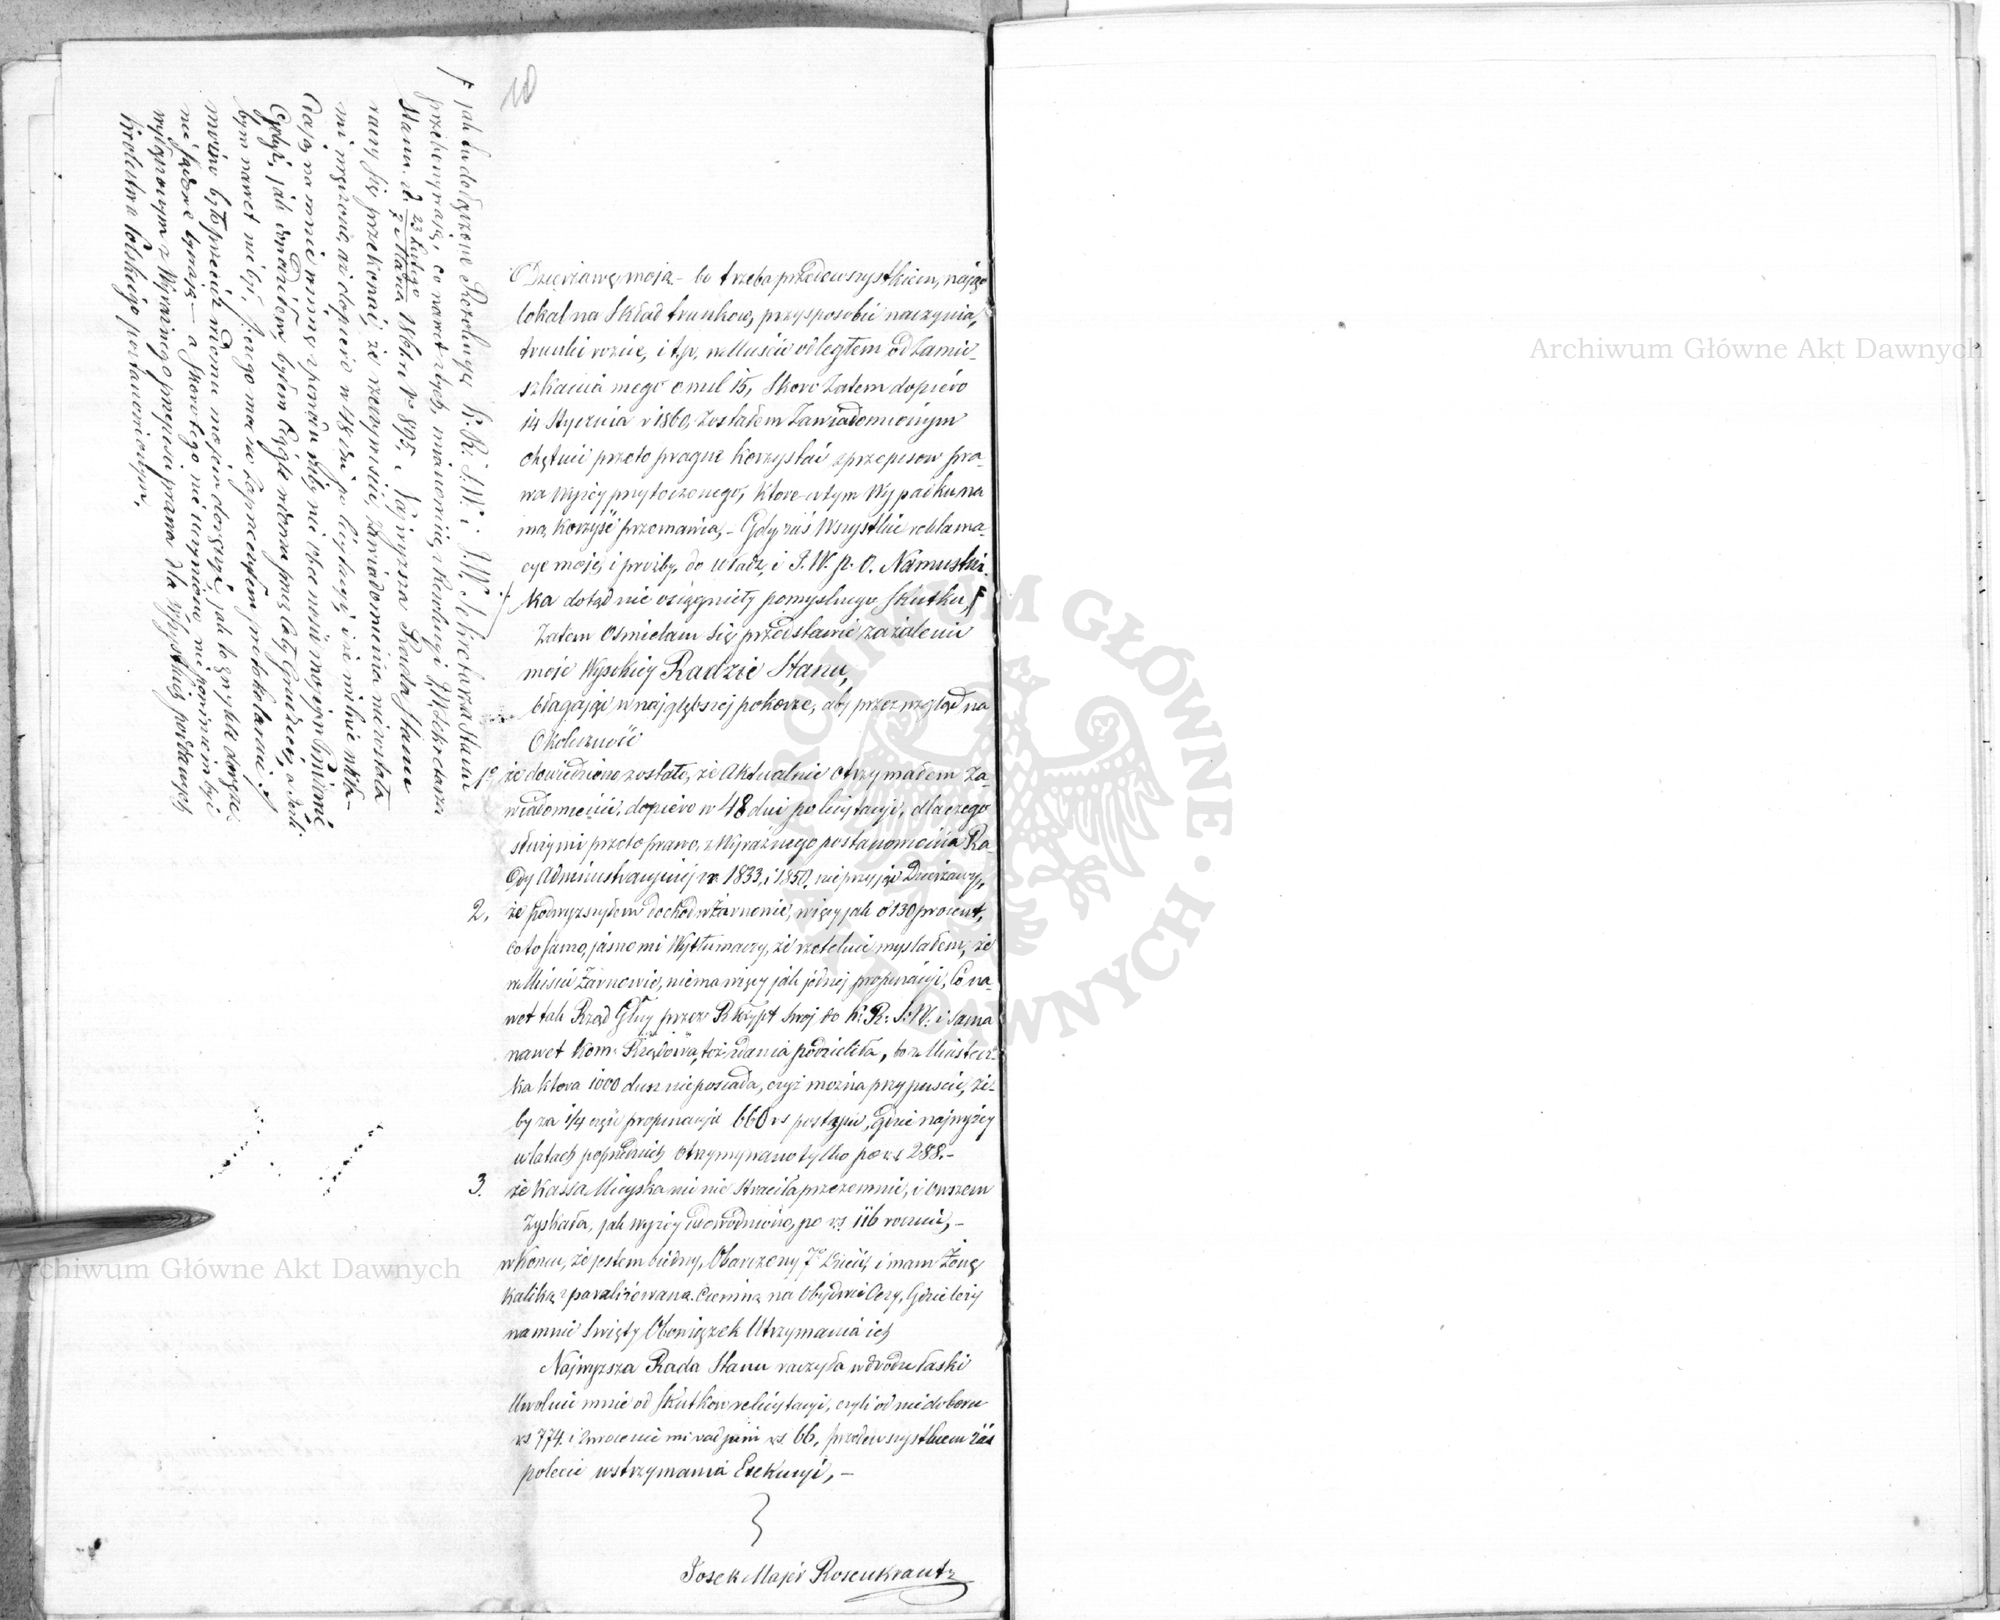 10
Dzierżawę moją – bo trzeba przedewszystkiem, nająć
lokal na Skład trunkow, przysposobić naczynia,
trunki rożne, i t.p. w Mieście odległem od Zamie-
szkania mego o mil 15, Skoro Zatem dopiéro
14 Stycznia r 1860, Zostałem Zawiadomionym
chętnie przeto pragnę korzystać z przepisow pra-
wa Wyżey przytoczonego, ktore w tym Wypadku na
mą korzyść przemawia, – Gdy zaś Wszystkie reklama-
cye moje, i prośby, do Władz, i J. W. p. o. Namiestni-
ka dotąd nie osiągnęły pomyślnego Skutku, F
Zatem Ośmielam się przedstawić zażalenie
moje Wysokiey Radzie Stanu,
błagając w najgłębszej pokorze, aby przez wzgląd na
Okoliczność
1o że dowiedziono zostało, że Aktualnie otrzymałem Za-
wiadomienie, dopiero w 48 dni po licytacyi, dlaczego
służy mi przeto prawo, z Wyraźnego postanowienia Ra-
dy Administracyjnéj z r 1833, i 1850, nie przyjąć Dzierżawy,
2. że podwyższyłem dochod w Żarnowie, więcy jak o 130 procent,
co to samo, jasno mi Wytłumaczy, że rzetelnie myslałem, że
w Mieście Żarnowie, niema więcy jak jédnéj propinacyi, Co na-
wet tak Rząd Glny przez Reskrypt Swoj do K. R. S. W. i sama
nawet Kom: Rządowa, toż zdania podzieliła, bo z Miastecz-
ka ktora 1000 dusz nie posiada, czyż można przypuscić, że-
by za 1/4 częsć propinacyi 660 rs postąpić, Gdzie najwyżey
w latach poprzednich otrzymywano tylko po rs 288. –
3. że Kassa Mieyska nic nie straciła przezemnie, i owszem
Zyskała, jak wyżéy udowodniono, po rs 116 rocznie, –
w końcu, że jestem biédny, Obarczony 7o Dzieci, i mam Żonę
kaliką sparaliżowana. Ciemną na Obydwie Oczy, Gdzie leży
na mnie Swięty Obowiązek Utrzymania ich
Najwyższa Rada Stanu raczyła w drodze łaski
Uwolnić mnie od Skutkow relicytacyi, czyli od niedoboru
rs 774. i zwrocenie mi vadjum rs. 66, przedewszystkiem zaś
polecić wstrzymania Exekucyi, –
Josek Majer Rosenkrantz
F jak tu dołączone Rezolucye K. R. S. W. i J. W. Sekretarza Stanu
przekonywają, co nawet z tych, mianowicie z Rezolucyi J. W. Sekretarza
Stanu z d. 23 Lutego / 7 Marca 1861 r. Nr 895. i Najwyższa Rada Stanu
raczy się przekonać, że rzeczywiscie, Zawiadomienia nie została
mi wręczone, aż dopiero w 48 dni po licytacyi, i że mylnie wkła-
dają na mnie winę z powodu
Gdyż, jak dopełniłem, byłem ciągle w domu przez cały Grudzień,
bym nawet nie był,
można było przecież w domu mojem doręczyć, jak to zwykle doręcze-
nie sądowe bywają – a Skoro tego nie uczyniono, nie powinienem być
wyłączonym z Wyraźnego przepisu prawa dla Wszystkich poddanych
Krolestwa Polskiego postanowionym.
Archiwum Główne Akt Dawnych
Archiwum Główne Akt Dawnych
ARCHIWUM GŁÓWNE · AKT DAWNYCH ·